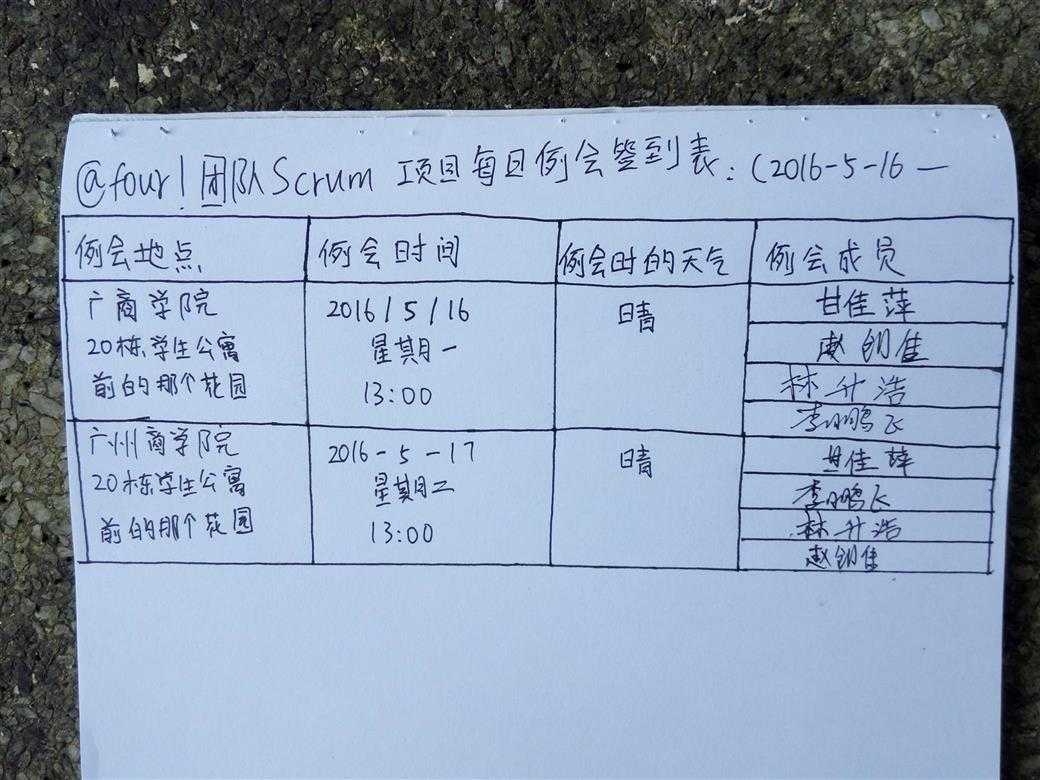 @four!团队Scrum 项目每日例会签到表:(2016-5-16 —
例会地点 例会时间 例会时的天气 例会成员
广商学院
20栋学生公寓
前的那个花园
2016/5/16
星期一
13:00
晴
甘佳萍
赵创佳
林升浩
李鹏飞
广州商学院
20栋学生公寓
前的那个花园
2016-5-17
星期二
13:00
晴
甘佳萍
李鹏飞
林升浩
赵创佳